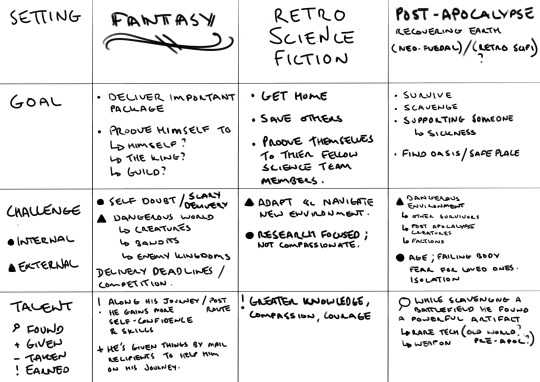 SETTING
FANTASY
RETRO
SCIENCE
FICTION
POST-APOCALYPSE
RECOVERING EARTH
(NEO-FUEDAL)/(RETRO SCIFI)
?
GOAL
• DELIVER IMPORTANT
PACKAGE
• PROOVE HIMSELF TO
↳ HIMSELF?
↳ THE KING?
↳ GUILD?
• GET HOME
• SAVE OTHERS
• PROOVE THEMSELVES
TO THIER FELLOW
SCIENCE TEAM
MEMBERS.
• SURVIVE
• SCAVENGE
• SUPPORTING SOMEONE
↳ SICKNESS
• FIND OASIS/SAFE PLACE
CHALLENGE
● INTERNAL
▲ EXTERNAL
● SELF DOUBT/SCARY
DELIVERY
▲ DANGEROUS WORLD
↳ CREATURES
↳ BANDITS
↳ ENEMY KINGDOMS
DELIVERY DEADLINES/
COMPETITION.
▲ ADAPT & NAVIGATE
NEW ENVIRONMENT.
● RESEARCH FOCUSED;
NOT COMPASSIONATE.
▲ DANGEROUS
ENVIRONMENT
↳ OTHER SURVIVORS
↳ POST APOCALYPSE
CREATURES
↳ FACTIONS
● AGE; FAILING BODY
FEAR FOR LOVED ONES.
ISOLATION
TALENT
FOUND
+ GIVEN
- TAKEN
! EARNED
! ALONG HIS JOURNEY/POST
ROUTE
HE GAINS MORE
SELF-CONFIDENCE
& SKILLS
+ HE'S GIVEN THINGS BY MAIL
RECIPIENTS TO HELP HIM
ON HIS JOURNEY.
! GREATER KNOWLEDGE,
COMPASSION, COURAGE
WHILE SCAVENGING A
BATTLEFIELD HE FOUND
A POWERFUL ARTIFACT
↳ RARE TECH (OLD WORLD?
↳ WEAPON PRE-APOC?)